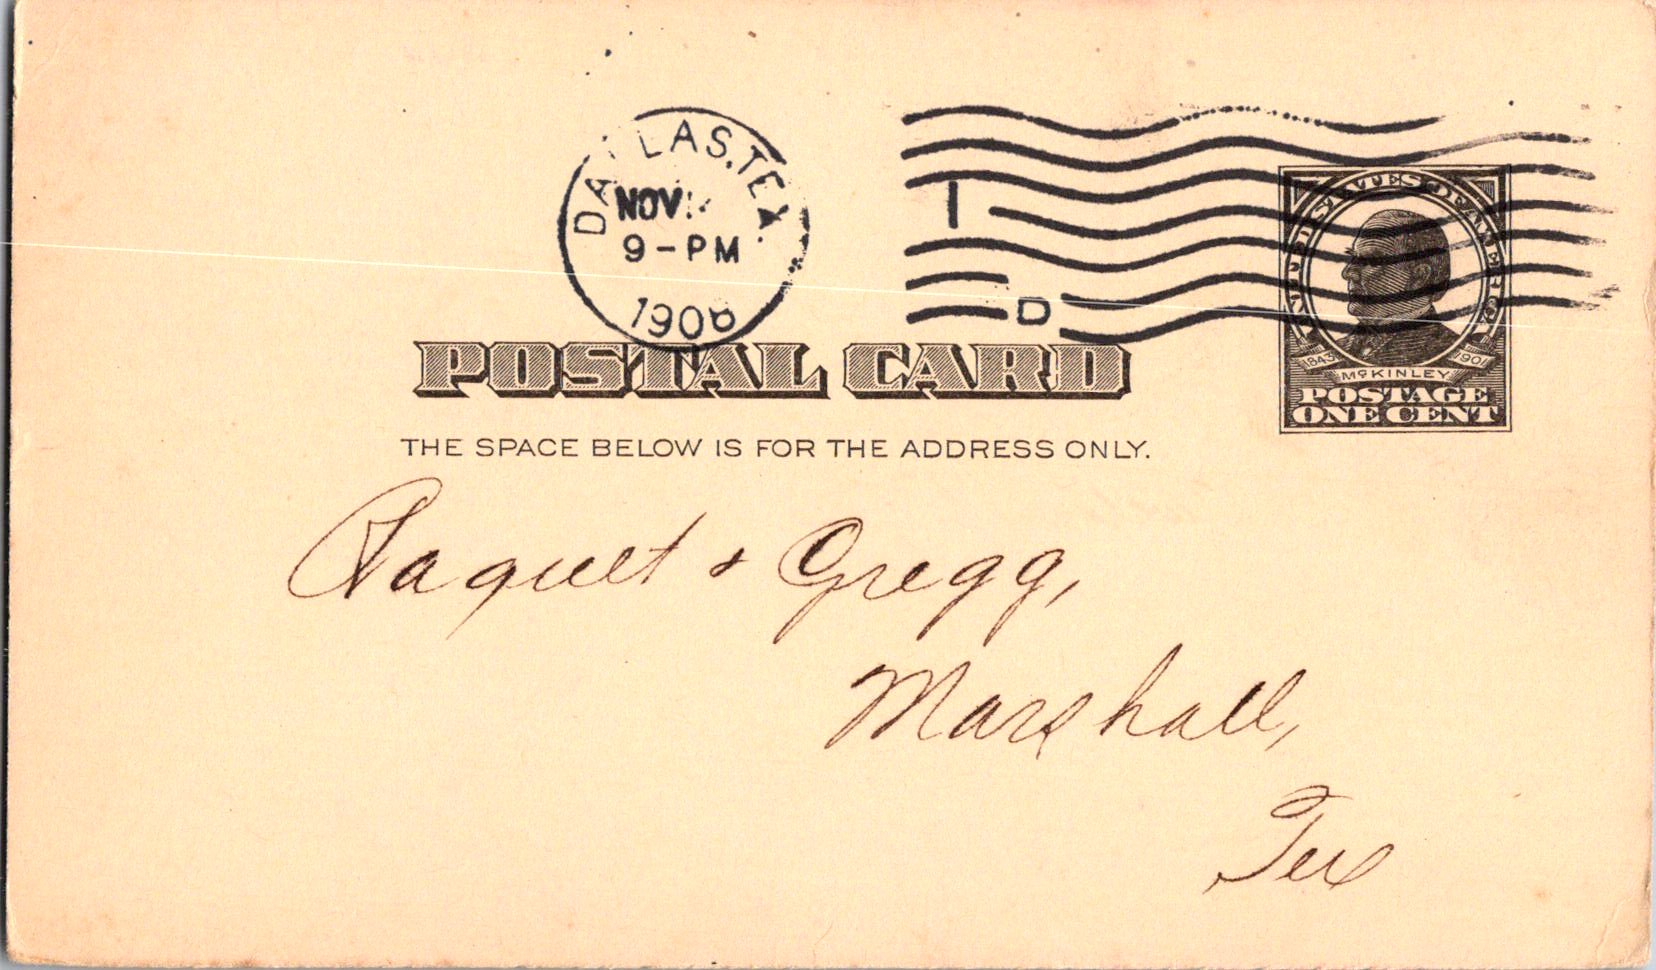 DALLAS, TEX.
NOV
9-PM
1906
I
D
UNITED STATES OF AMERICA
1843 McKINLEY 1901
POSTAGE
ONE CENT
POSTAL CARD
THE SPACE BELOW IS FOR THE ADDRESS ONLY.
Paquet & Gregg,
Marshall,
Tex